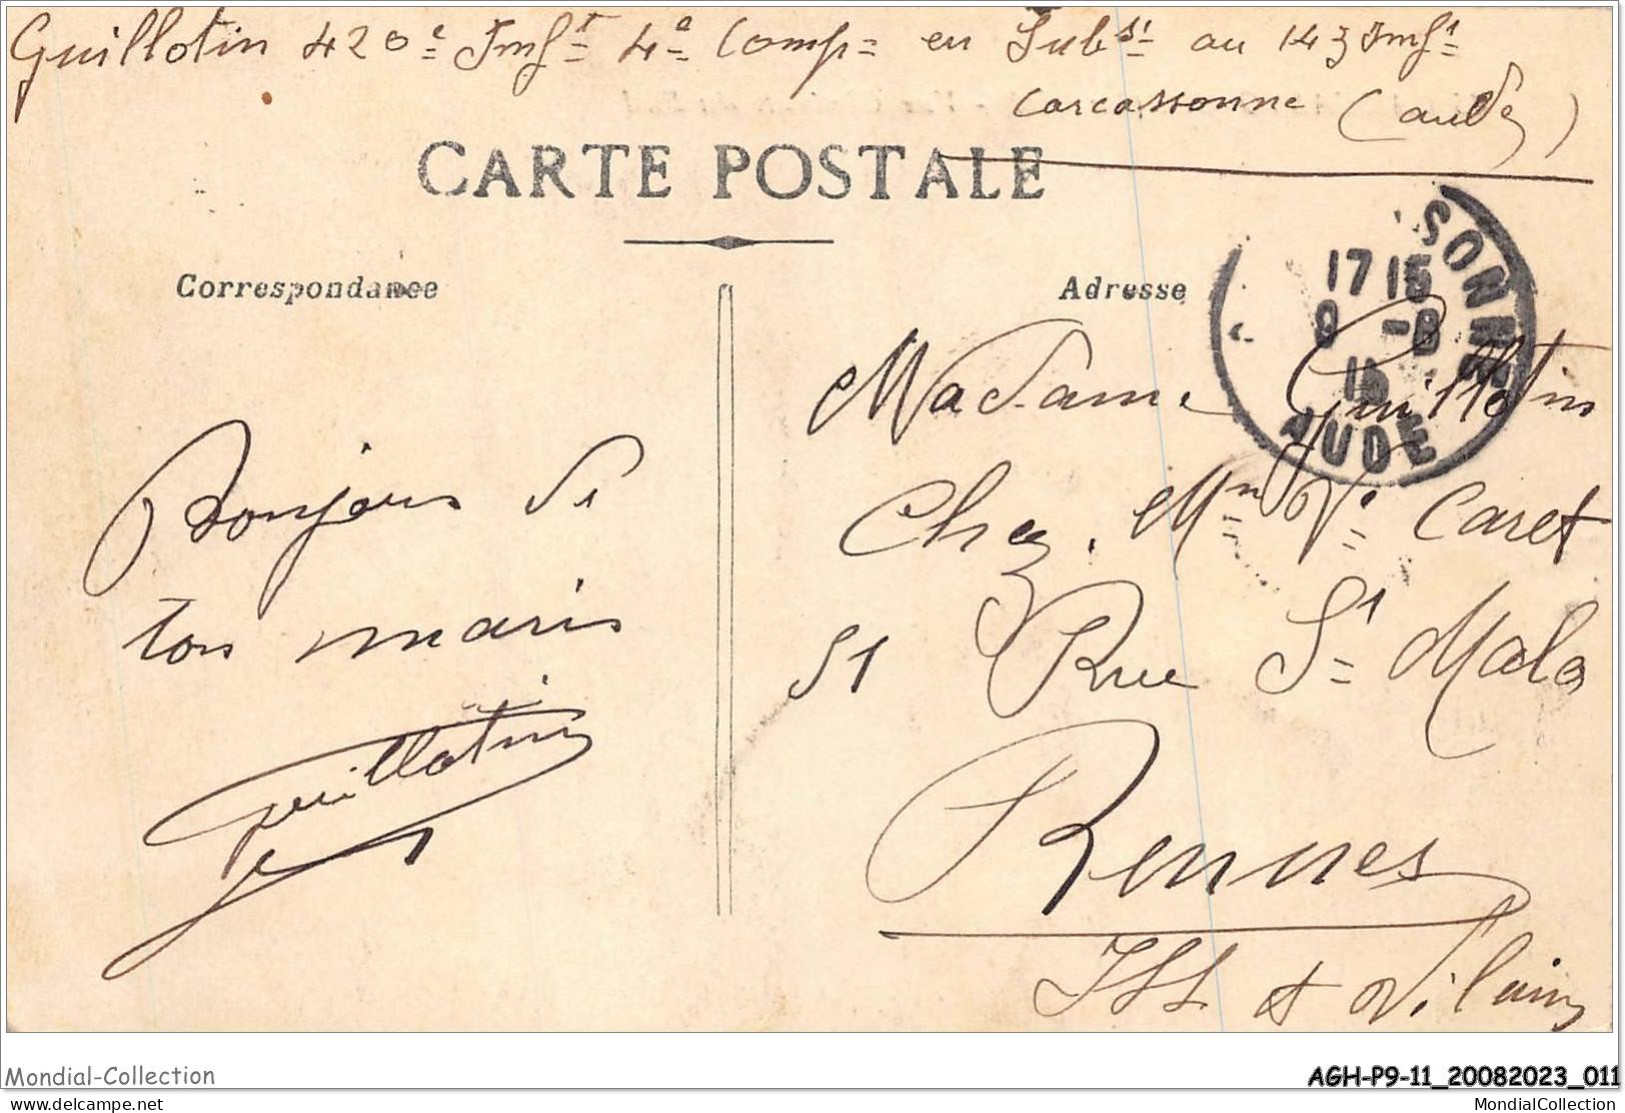 Guillotin 420e Inft 4e Comp= en Subst au 143 Inft
Carcassonne (Aude)
CARTE POSTALE
Correspondance
Adresse
SONNE
17 15
9 -8
15
AUDE
Bonjour de
ton mari
Guillotin
Madame Guillotin
Chez Mn Ve Caret
51 Rue St Malo
Rennes
Ill & Vilaine
Mondial-Collection
AGH-P9-11_20082023_011
delcampe.net
MondialCollection